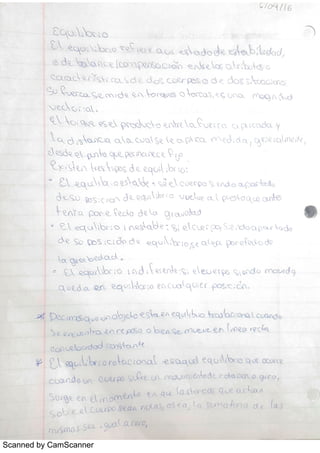 5/09/16
Equilibrio
El equilibrio refiere a un estado de estabilidad,
o de balance (compensación entre los atributos o
características de dos cuerpos o de dos situaciones
Su fuerza se mide en torques o torcas, es una magnitud
vectorial.
El torque es el producto entre la fuerza aplicada y
la distancia a la cual se te aplica medida, generalmente,
desde el punto que permanece fijo
Existen tres tipos de equilibrio:
• El equilibrio estable: si el cuerpo siendo apartado
de su posición de equilibrio vuelve al puesto que antes
tenía por efecto de la gravedad
• El equilibrio inestable: si el cuerpo siendo apartado
de su posición de equilibrio, se aleja por efecto de
la gravedad.
• El equilibrio indiferente: si el cuerpo siendo movido
queda en equilibrio en cualquier posición.
Decimos que un objeto esta en equilibrio traslacional cuando
se encuentra en reposo o bien se mueve en linea recta
con velocidad constante
El equilibrio rotacional es aquel equilibrio que ocurre
cuando un cuerpo sufre un movimiento de rotacion o giro,
Surge en el momento en que las torcas que actuan
sobre el cuerpo sean nulas, o sea, la sumatoria de las
mismas sea igual a cero,
Scanned by CamScanner